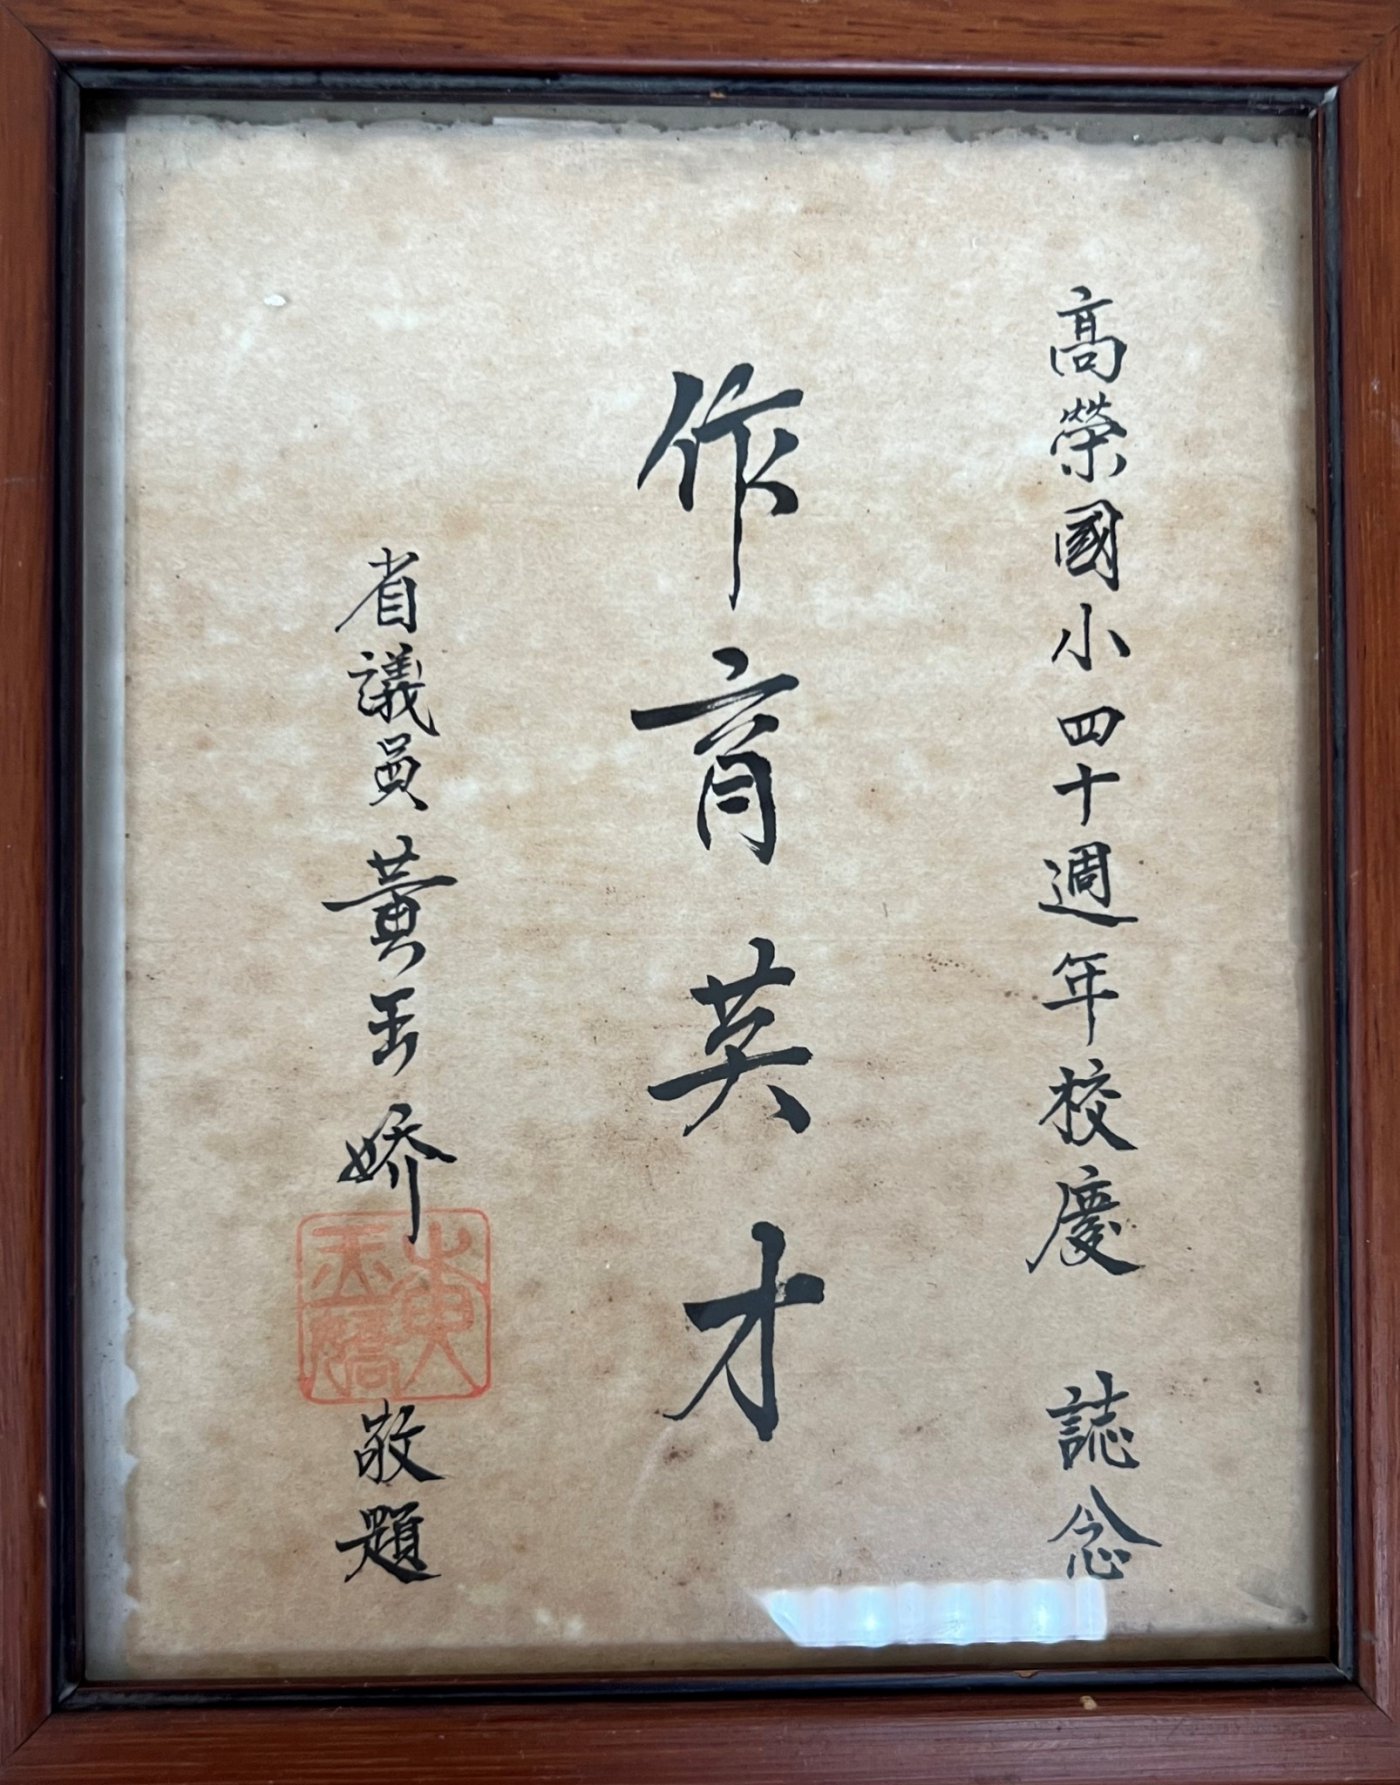 高榮國小四十週年校慶 誌念
作育英才
省議員黃玉嬌 敬題
黃玉嬌